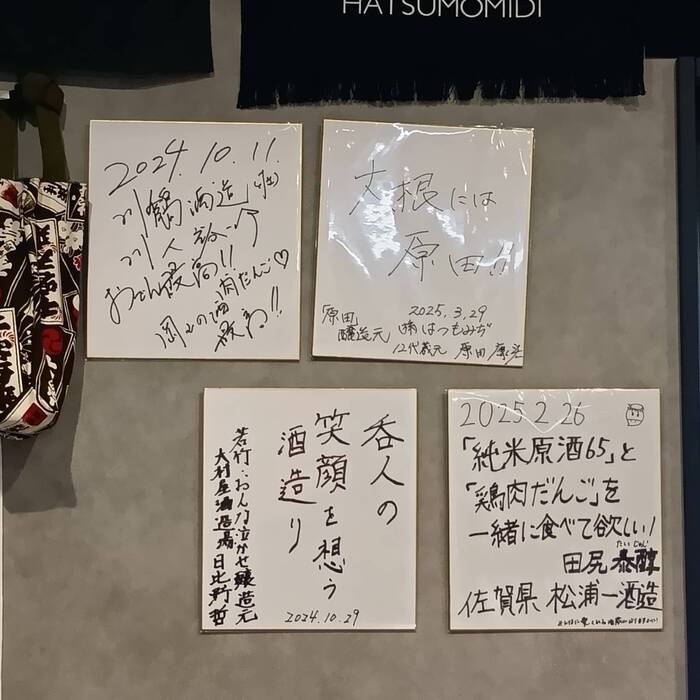 HATSUMOMIDI
2024.10.11.
川鶴酒造㈱
川人裕一
おでん最高!!
肉だんご♡
大根には
原田!!
2025.3.29
「原田」
醸造元
㈱はつもみぢ
12代蔵元 原田 康
呑人の
笑顔を想う
酒造り
若竹・おんな泣かせ醸造元
大村屋酒造場 日比野哲
2024.10.29
2025 2 26
「純米原酒65」と
「鶏肉だんご」を
一緒に食べて欲しい!
田尻 泰醇
佐賀県 松浦一酒造